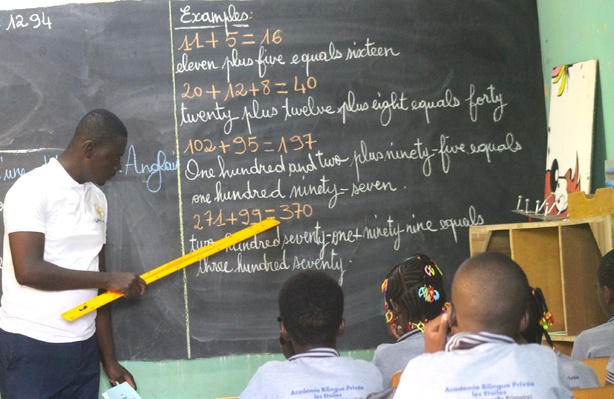 1294
Examples:
11 + 5 = 16
eleven plus five equals sixteen
20 + 12 + 8 = 40
twenty plus twelve plus eight equals forty
102 + 95 = 197
One hundred and two plus ninety-five equals
one hundred ninety-seven.
271 + 99 = 370
two hundred seventy-one + ninety-nine equals
three hundred seventy.
Anglais
Académie Bilingue Privée
les Etoiles
Académie Bilingue Privée
les Etoiles